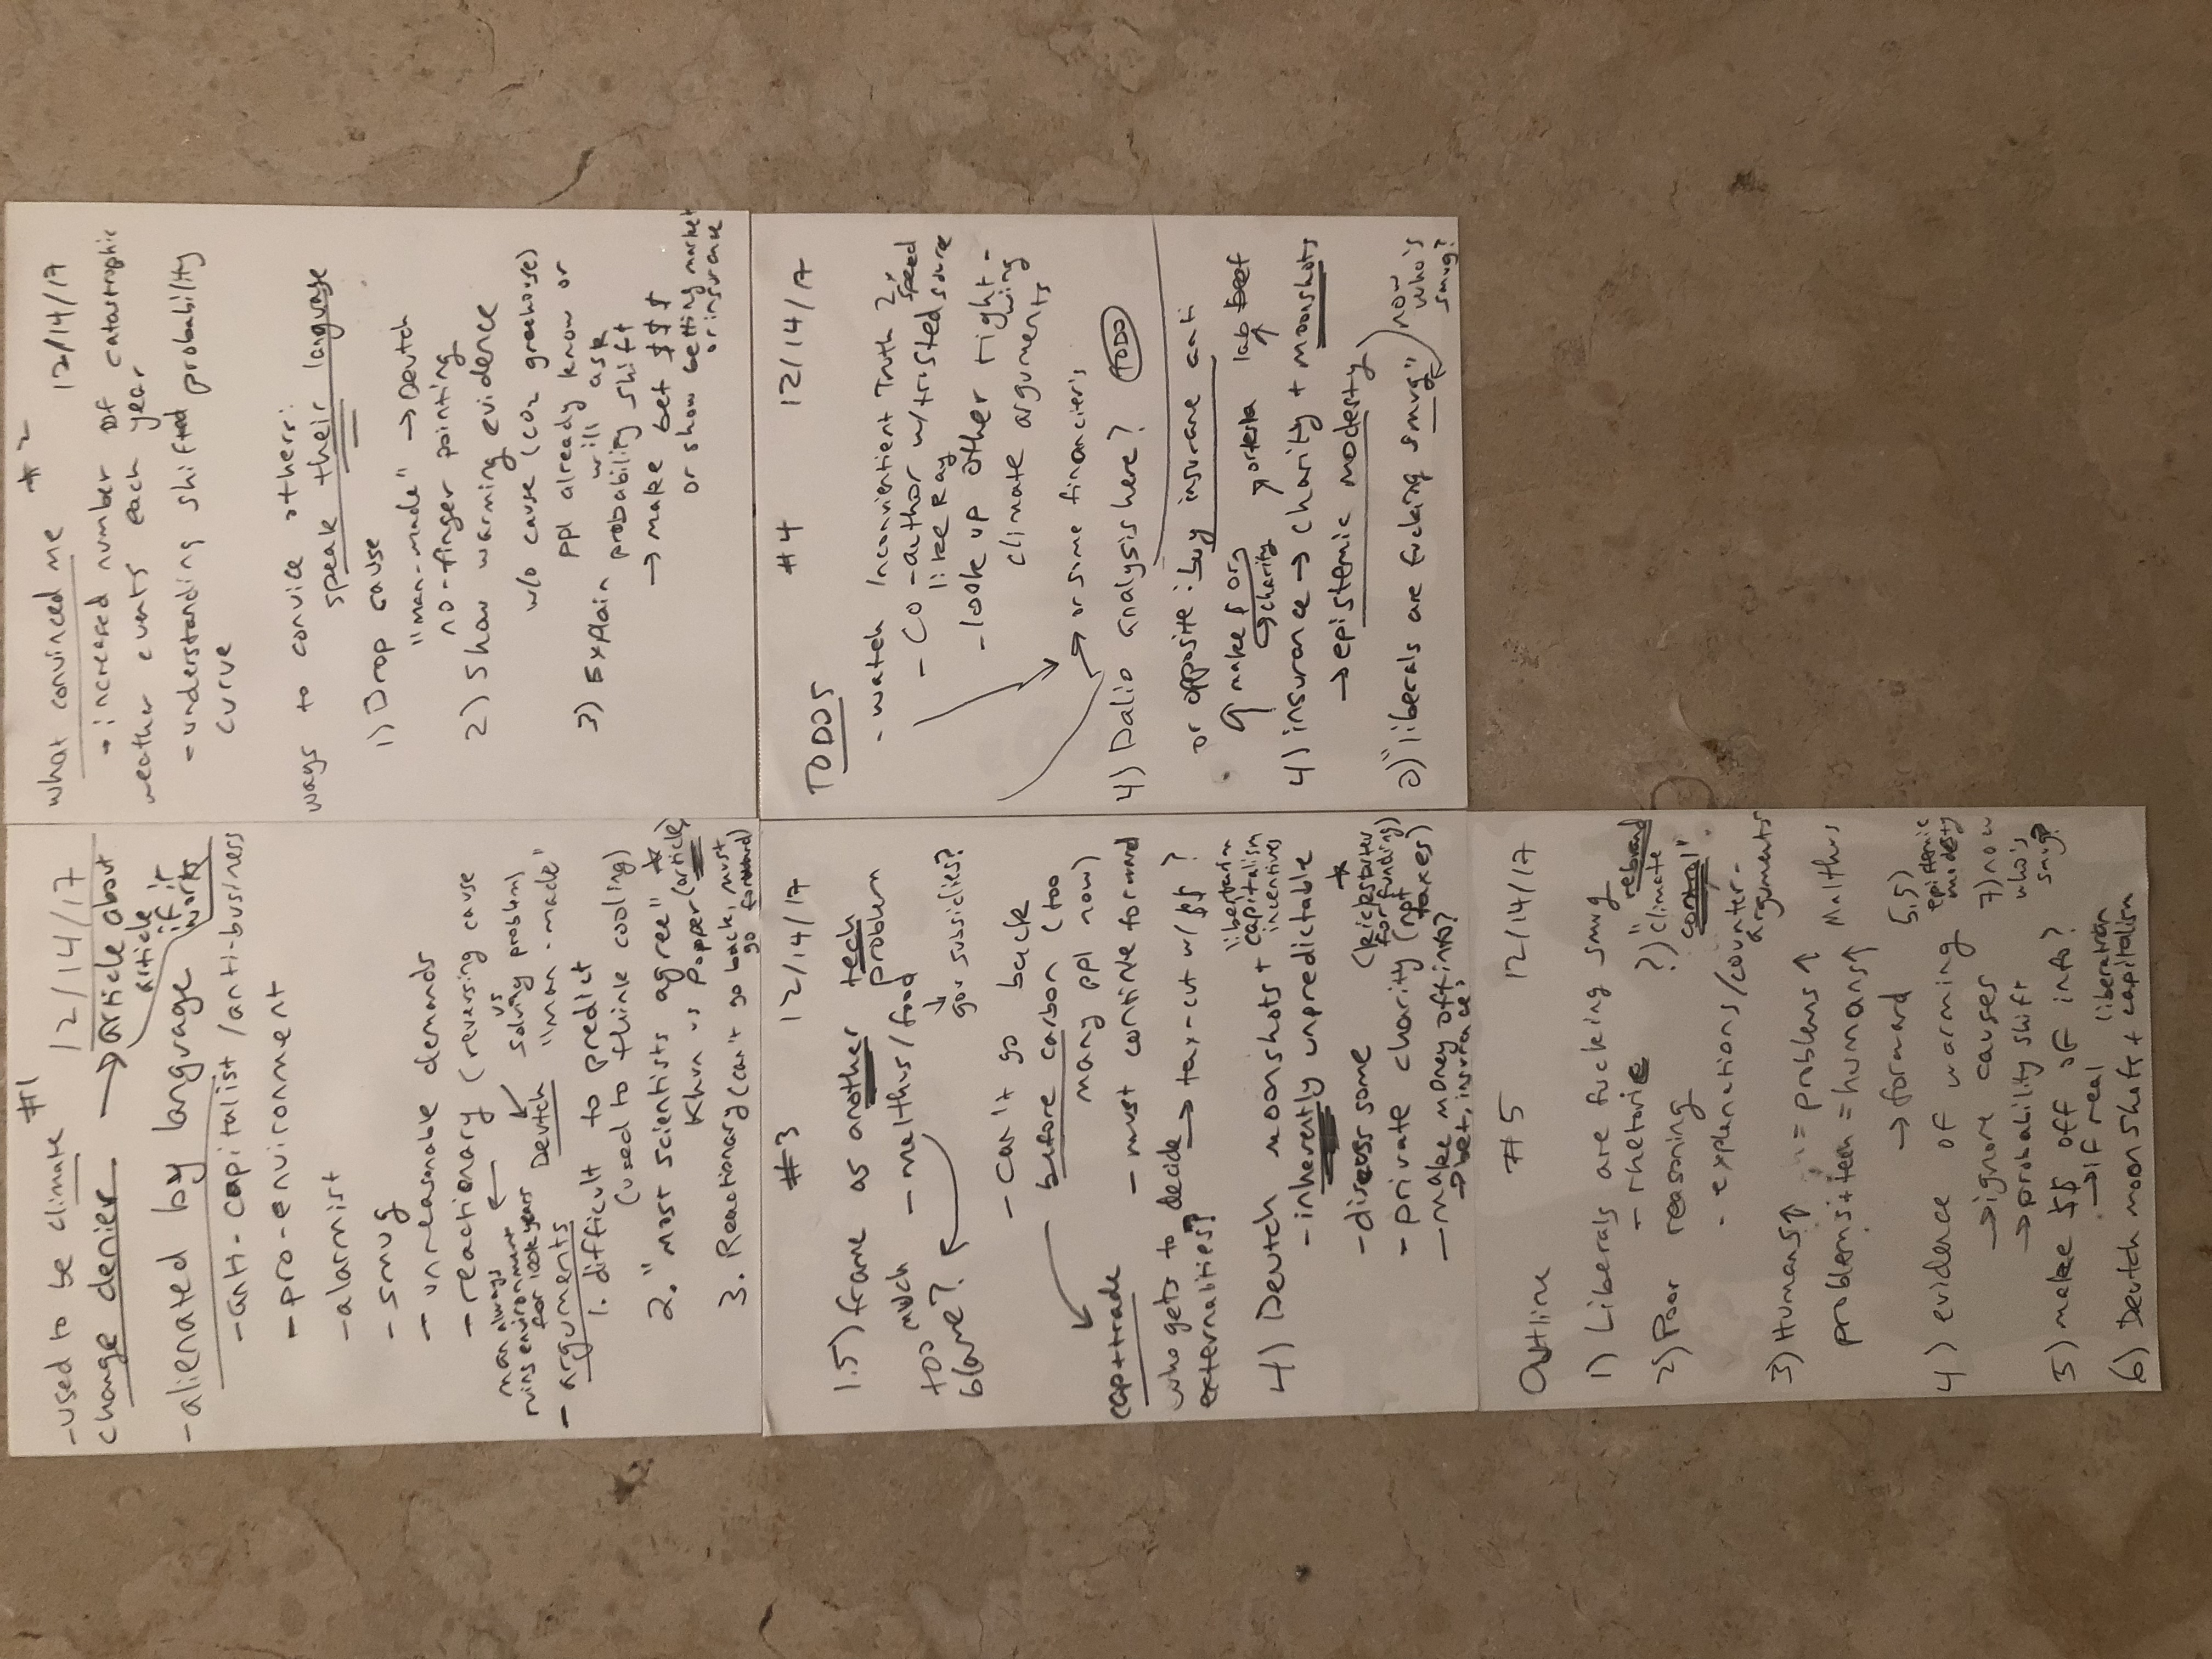 #1
-used to be climate
12/14/17
change denier → article about
article
if it
works
-alienated by language
-anti-capitalist/anti-business
-pro-environment
-alarmist
- smug
- unreasonable demands
-reactionary (reversing cause
vs
solving problem)
man always
ruins environment
for 100k years
Deutch "man-made"
- arguments
1. difficult to predict
(used to think cooling)
2. "most scientists agree" *
Khun vs Popper (article)
3. Reactionary (can't go back, must
go forward)
#2
what convinced me
12/14/17
- increased number of catastrophic
weather events each year
-understanding shifted probability
curve
ways to convice others:
speak their language
1) Drop cause
"man-made" → Deutch
no-finger pointing
2) Show warming evidence
w/o cause (CO2 greehouse)
ppl already know or
will ask
3) Explain
probability shift
→ make bet $$$
or show betting market
or insurance
#3 12/14/17
1.5) frame as another tech
problem
- malthus/food
too much
blame?
↓
gov subsidies?
- can't go back
before carbon (too
many ppl now)
cap+trade
- must continue forward
who gets to decide
externalities?
→ tax-cut w/ $$ ?
4) Deutch moonshots +
libertarian
capitalism
incentives
-inherently unpredictable
-discuss some
*
(kickstarter
for funding)
- private charity (not
taxes)
-make money off info?
→bet, insurace?
#4 12/14/17
TODOS
- watch Inconvientient Truth 2x
speed
- Co-author w/trusted source
like Ray
-look up other right-
wing
climate arguments
→ or some financier's
4) Dalio analysis here? TODO
or opposite: buy insurane anti
make $ org
→charity
or tesla lab beef
4) insurance → charity + moonshots
→epistemic modesty
0) "liberals are fucking smug"
now
who's
smug?
#5 12/14/17
Outline
1) Liberals are fucking smug
- rhetoric
?) "rebrand
climate
control"
2) Poor reasoning
- explanations/counter-
arguments
3) Humans↑ = problems ↑
problems+tech = humans↑
Malthus
→ forward
4) evidence of warming
→ignore causes
→probability shift
5.5)
epistemic
modesty
7) now
who's
smug?
5) make $$ off of info?
→if real
6) Deutch moonshots + capitalism